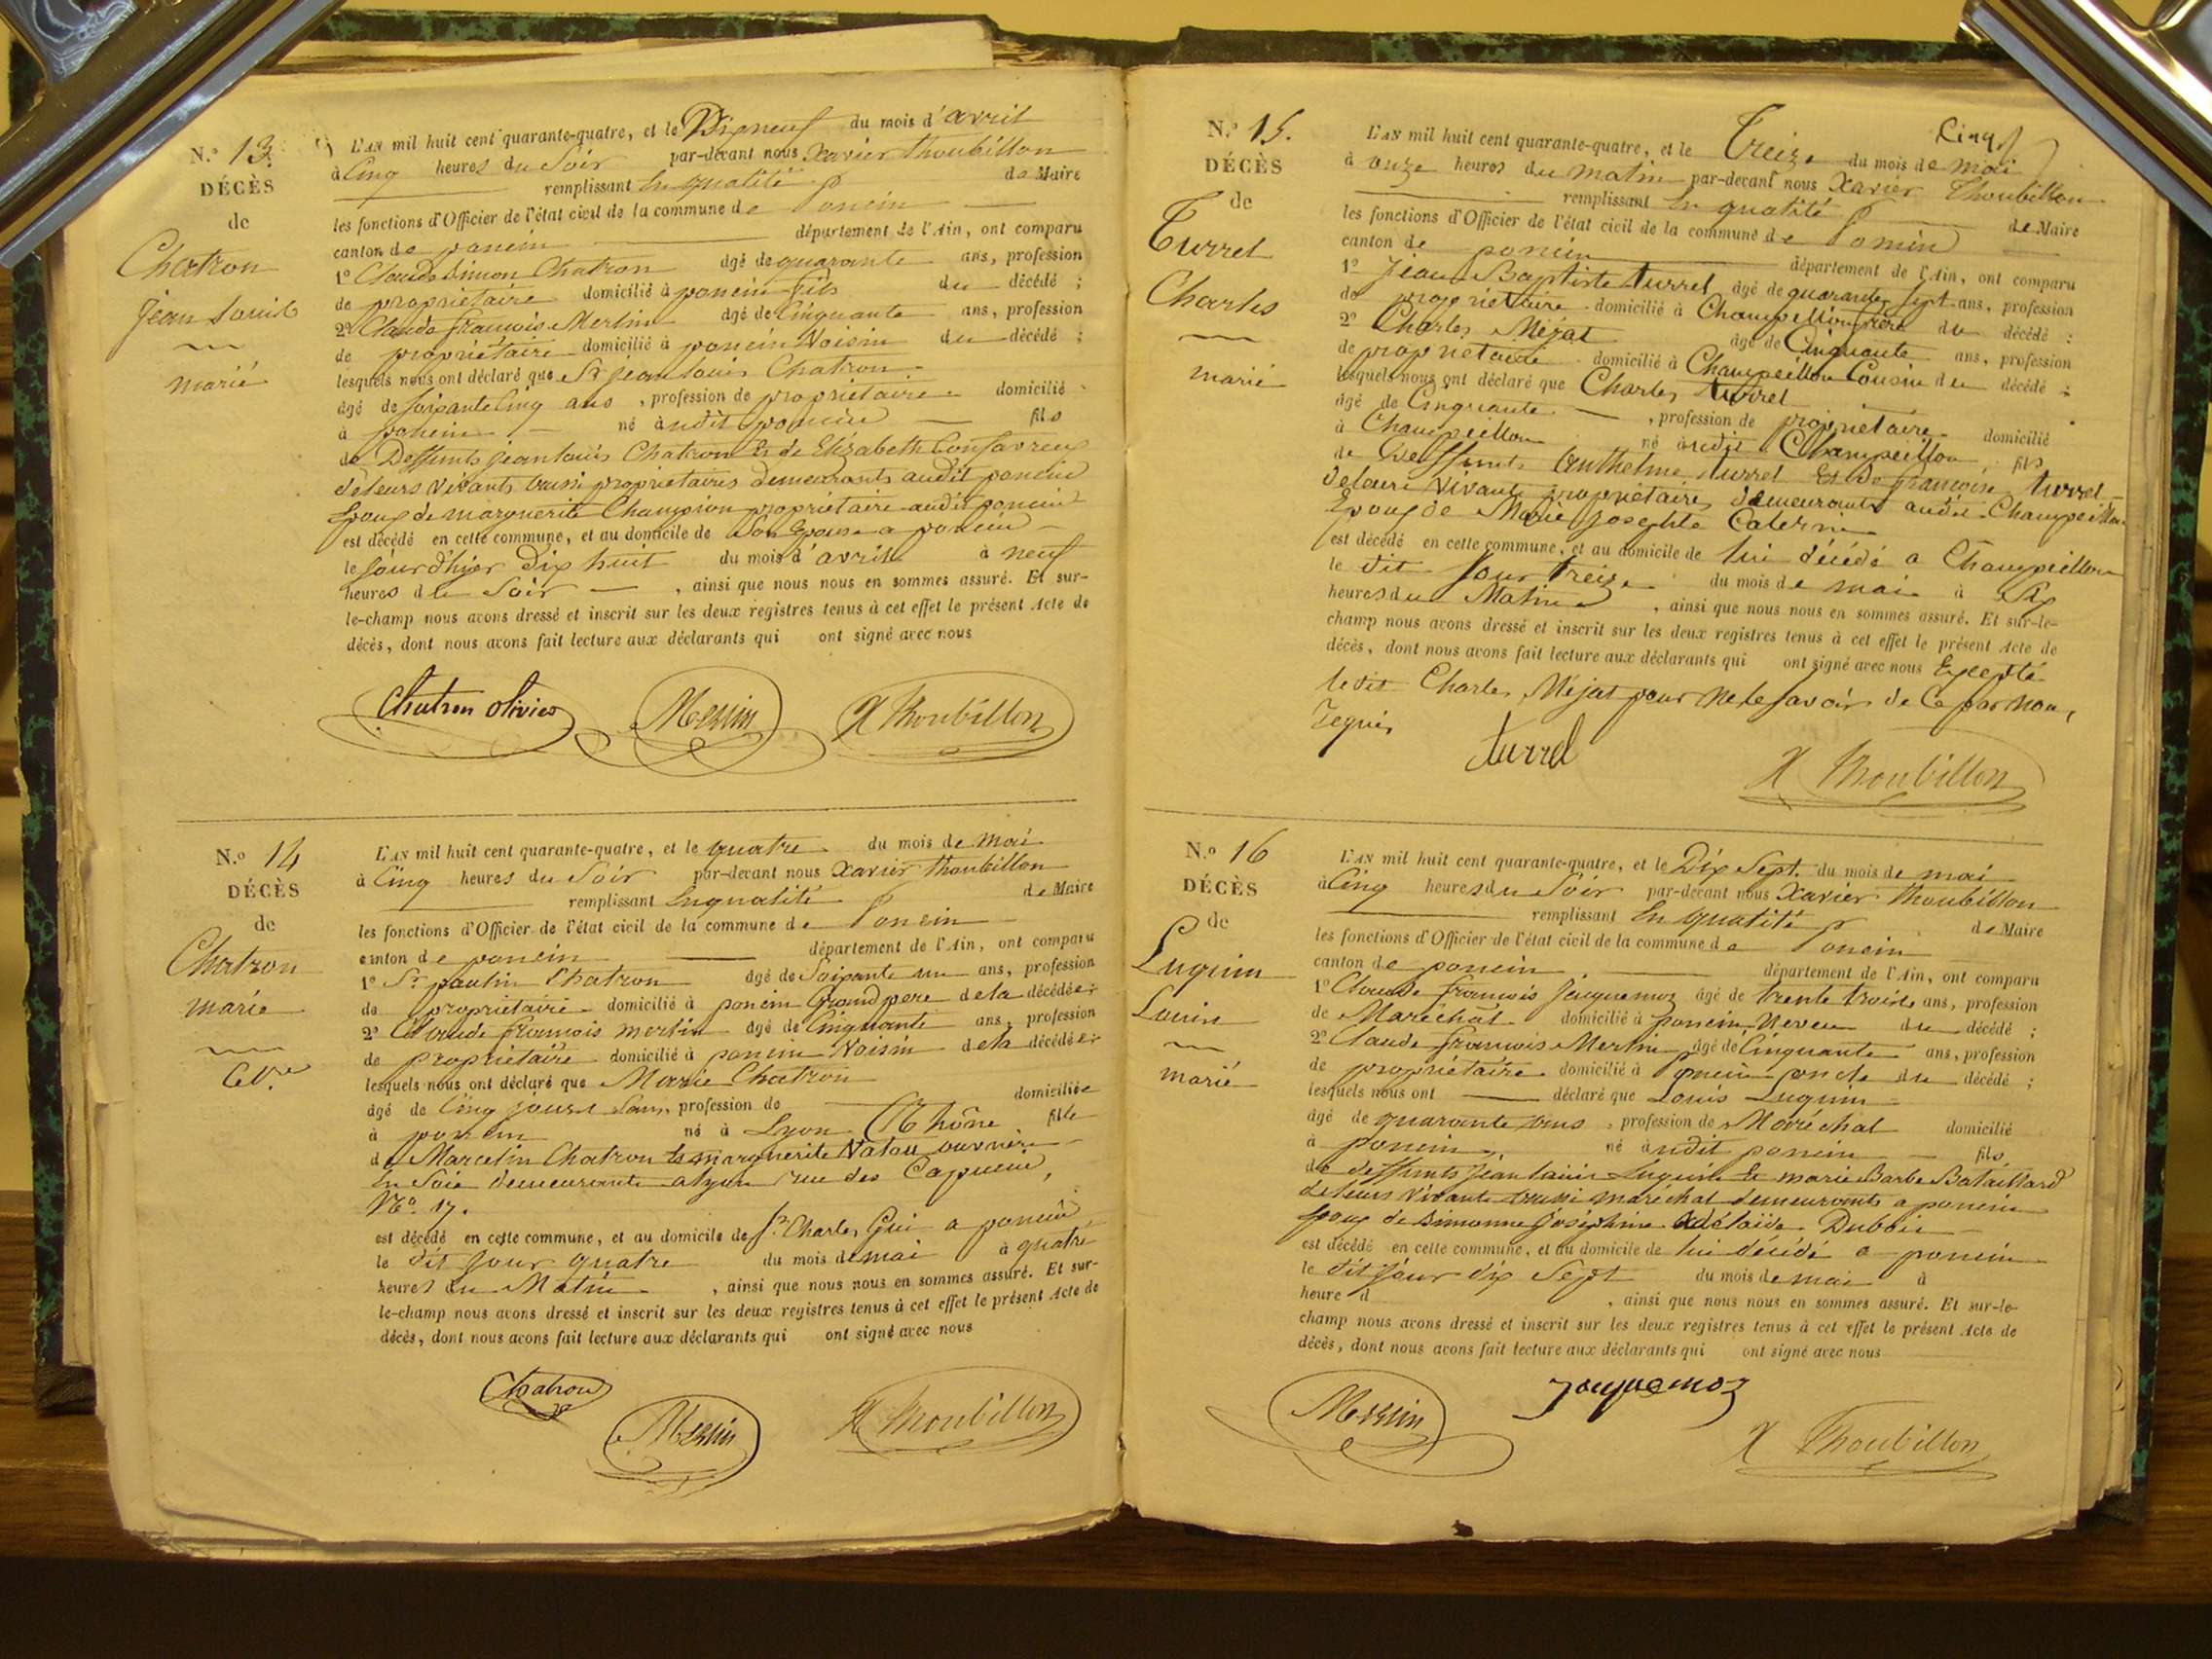 N.º 13.
DÉCÈS
de
Chatron
jean Louis
marié
L'AN mil huit cent quarante-quatre, et le Dixneuf du mois d'avril
à Cinq heures du Soir par-devant nous Xavier Thoubillon
remplissant En qualité de Maire
les fonctions d'Officier de l'état civil de la commune de Poncin
canton de poncin département de l'Ain, ont comparu
1º Claude Simon Chatron âgé de quarante ans, profession
de propriétaire domicilié à poncin fils du décédé ;
2º Claude françois Merlin âgé de Cinquante ans, profession
de propriétaire domicilié à poncin Voisin du décédé ;
lesquels nous ont déclaré que Sr jean louis Chatron
âgé de soixante Cinq ans, profession de propriétaire domicilié
à poncin né àudit poncin fils
de Deffunts jean louis Chatron Et de Elizabeth Confavreux
de leurs vivants aussi propriétaires demeurants audit poncin
Epoux de marguerite Champion propriétaire audit poncin
est décédé en cette commune, et au domicile de Son Epouse a poncin
le jour d'hyer Dix huit du mois d'avril à neuf
heures du Soir, ainsi que nous nous en sommes assuré. Et sur-
le-champ nous avons dressé et inscrit sur les deux registres tenus à cet effet le présent Acte de
décès, dont nous avons fait lecture aux déclarants qui ont signé avec nous
Chatron olivier Merlin X Thoubillon
N.º 14
DÉCÈS
de
Chatron
marie
Cel.re
L'AN mil huit cent quarante-quatre, et le quatre du mois de mai
à Cinq heures du Soir par-devant nous Xavier Thoubillon
remplissant En qualité de Maire
les fonctions d'Officier de l'état civil de la commune de Poncin
canton de poncin département de l'Ain, ont comparu
1º Sr paulin Chatron âgé de Soixante un ans, profession
de propriétaire domicilié à poncin Grand pere de la décédée ;
2º Claude françois merlin âgé de Cinquante ans, profession
de propriétaire domicilié à poncin Voisin de la décédée ;
lesquels nous ont déclaré que Marie Chatron
âgé de Cinq jours Sans profession de domiciliée
à poncin né à Lyon Rhône fille
de Marcelin Chatron Et marguerite Natou ouvrière
En Soie demeurante a lyon rue des Capucin,
Nº. 17.
est décédé en cette commune, et au domicile de Sr Charles Gui a poncin
le dit jour quatre du mois de mai à quatre
heures du Matin, ainsi que nous nous en sommes assuré. Et sur-
le-champ nous avons dressé et inscrit sur les deux registres tenus à cet effet le présent Acte de
décès, dont nous avons fait lecture aux déclarants qui ont signé avec nous
Chatron
Merlin X Thoubillon
Cinq
N.º 15.
DÉCÈS
de
Turrel
Charles
marié
L'AN mil huit cent quarante-quatre, et le Treize du mois de mai
à onze heures du matin par-devant nous Xavier Thoubillon
remplissant En qualité de Maire
les fonctions d'Officier de l'état civil de la commune de Poncin
canton de poncin département de l'Ain, ont comparu
1º Jean Baptiste turrel âgé de quarante Sept ans, profession
de propriétaire domicilié à Champeillon frère du décédé ;
2º Charles Méjat âgé de Cinquante ans, profession
de propriétaire domicilié à Champeillon Cousin du décédé ;
lesquels nous ont déclaré que Charles turrel
âgé de Cinquante, profession de propriétaire domicilié
à Champeillon né àudit Champeillon fils
de Deffunts Anthelme turrel Et de françoise turrel
de leurs vivants propriétaires demeurants audit Champeillon
Epoux de Marie josephte Caterin
est décédé en cette commune, et au domicile de lui décédé a Champeillon
le dit jour treize du mois de mai à Six
heures du Matin, ainsi que nous nous en sommes assuré. Et sur-le-
champ nous avons dressé et inscrit sur les deux registres tenus à cet effet le présent Acte de
décès, dont nous avons fait lecture aux déclarants qui ont signé avec nous Excepté
ledit Charles Méjat pour ne le savoir de Ce par nou,
requis
turrel
X Thoubillon
N.º 16
DÉCÈS
de
Luguin
Louis
marié
L'AN mil huit cent quarante-quatre, et le Dix Sept du mois de mai
à Cinq heures du Soir par-devant nous Xavier Thoubillon
remplissant En qualité de Maire
les fonctions d'Officier de l'état civil de la commune de Poncin
canton de poncin département de l'Ain, ont comparu
1º Claude françois Jacquemoz âgé de trente trois ans, profession
de Maréchal domicilié à poncin Neveu du décédé ;
2º Claude françois Merlin âgé de Cinquante ans, profession
de propriétaire domicilié à poncin oncle du décédé ;
lesquels nous ont déclaré que Louis Luguin
âgé de quarante ans, profession de Maréchal domicilié
à poncin, né àudit poncin fils
de deffunts jean louis Luguin Et marie Barbe Bataillard
de leurs vivants aussi maréchal demeurants a poncin
Epoux de Simonne joséphine Adélaïde Dubois
est décédé en cette commune, et au domicile de lui décédé a poncin
le dit jour dix Sept du mois de mai à
heure d, ainsi que nous nous en sommes assuré. Et sur-le-
champ nous avons dressé et inscrit sur les deux registres tenus à cet effet le présent Acte de
décès, dont nous avons fait lecture aux déclarants qui ont signé avec nous
Merlin Jacquemoz
X Thoubillon